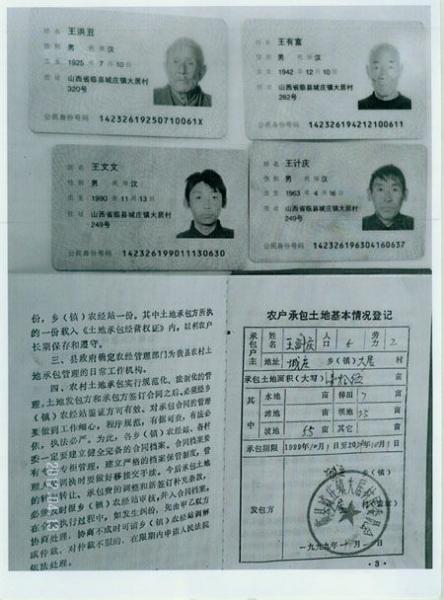 姓名 王洪丑
性别 男 民族 汉
出生 1925 年 7 月 10 日
住址 山西省临县城庄镇大居村
320号
公民身份号码 14232619250710061X
姓名 王有富
性别 男 民族 汉
出生 1942 年 12 月 10 日
住址 山西省临县城庄镇大居村
262号
公民身份号码 142326194212100611
姓名 王文文
性别 男 民族 汉
出生 1990 年 11 月 13 日
住址 山西省临县城庄镇大居村
249号
公民身份号码 142326199011130630
姓名 王计庆
性别 男 民族 汉
出生 1963 年 4 月 16 日
住址 山西省临县城庄镇大居村
249号
公民身份号码 142326196304160637
份,乡(镇)农经站一份。其中土地承包方所执
的一份载入《土地承包经营权证》内,以利农户
长期保存和遵守。
三、县政府确定农经管理部门为我县农村土
地承包管理的日常工作机构。
四、农村土地承包实行规范化、法制化的管
理。土地发包方和承包方签订合同之后,必须经乡
(镇)农经站鉴证方可有效。对承包合同的管理
要做到工作细心,程序规范,有据可查,有法必
依,执法必严。为此,各乡(镇)农经站、各村
委一定要建立健全完备的合同档案。合同档案要
有专柜管理,建立严格的档案保管制度,管
人员调换时要做好移交手续。今后承包土地
的转让、承包费的调整和新签订补充条款,
必须及时报乡(镇)农经站审核,并入合同档案。
在合同执行过程中,如发生纠纷,先由甲乙双方
协商处理,协商不成时可请乡(镇)农经站调解
或仲裁,对仲裁不服的,在限期内申请人民法院
依法处理。
农户承包土地基本情况登记
承包户主 姓名 人口 劳力 2
地址 城庄 乡(镇) 大居 村
承包土地面积(大写) 亩
其中 水地 亩 梯田 7 亩
滩地 亩 坝地 亩
坡地 亩 亩
承包期限
发包方 乡(镇)
·3·